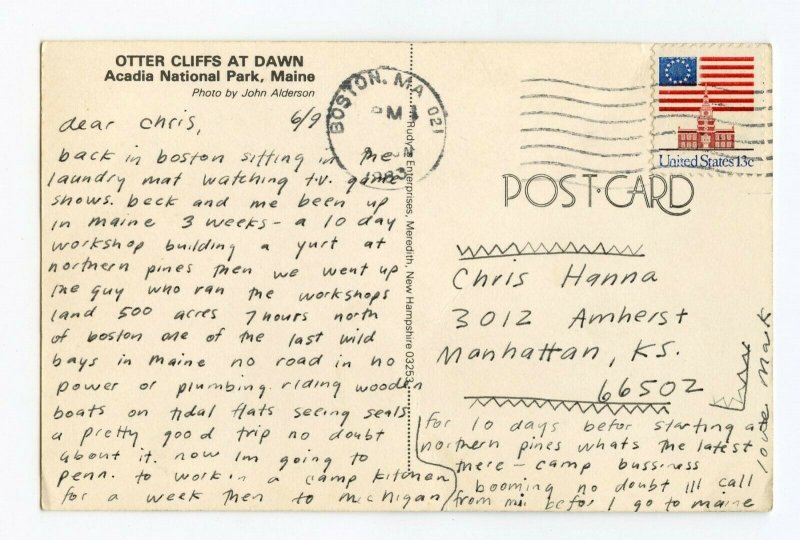 OTTER CLIFFS AT DAWN
Acadia National Park, Maine
Photo by John Alderson
6/9
dear Chris,
back in boston sitting in the
laundry mat watching t.v. game
shows. beck and me been up
in maine 3 weeks - a 10 day
workshop building a yurt at
northern pines then we went up
the guy who ran the workshops
land 500 acres 7 hours north
of boston one of the last wild
bays in maine no road in no
power or plumbing. riding wooden
boats on tidal flats seeing seals
a pretty good trip no doubt
about it. now Im going to
penn. to work in a camp kitchen
for a week then to michigan
for 10 days befor starting at
northern pines whats the latest
there - camp bussiness
booming no doubt Ill call
from mi. befor I go to maine
love Mark
Rudy's Enterprises, Meredith, New Hampshire 03253
BOSTON, MA 021
PM
1983
United States 13c
POST·CARD
Chris Hanna
3012 Amherst
Manhattan, KS.
66502